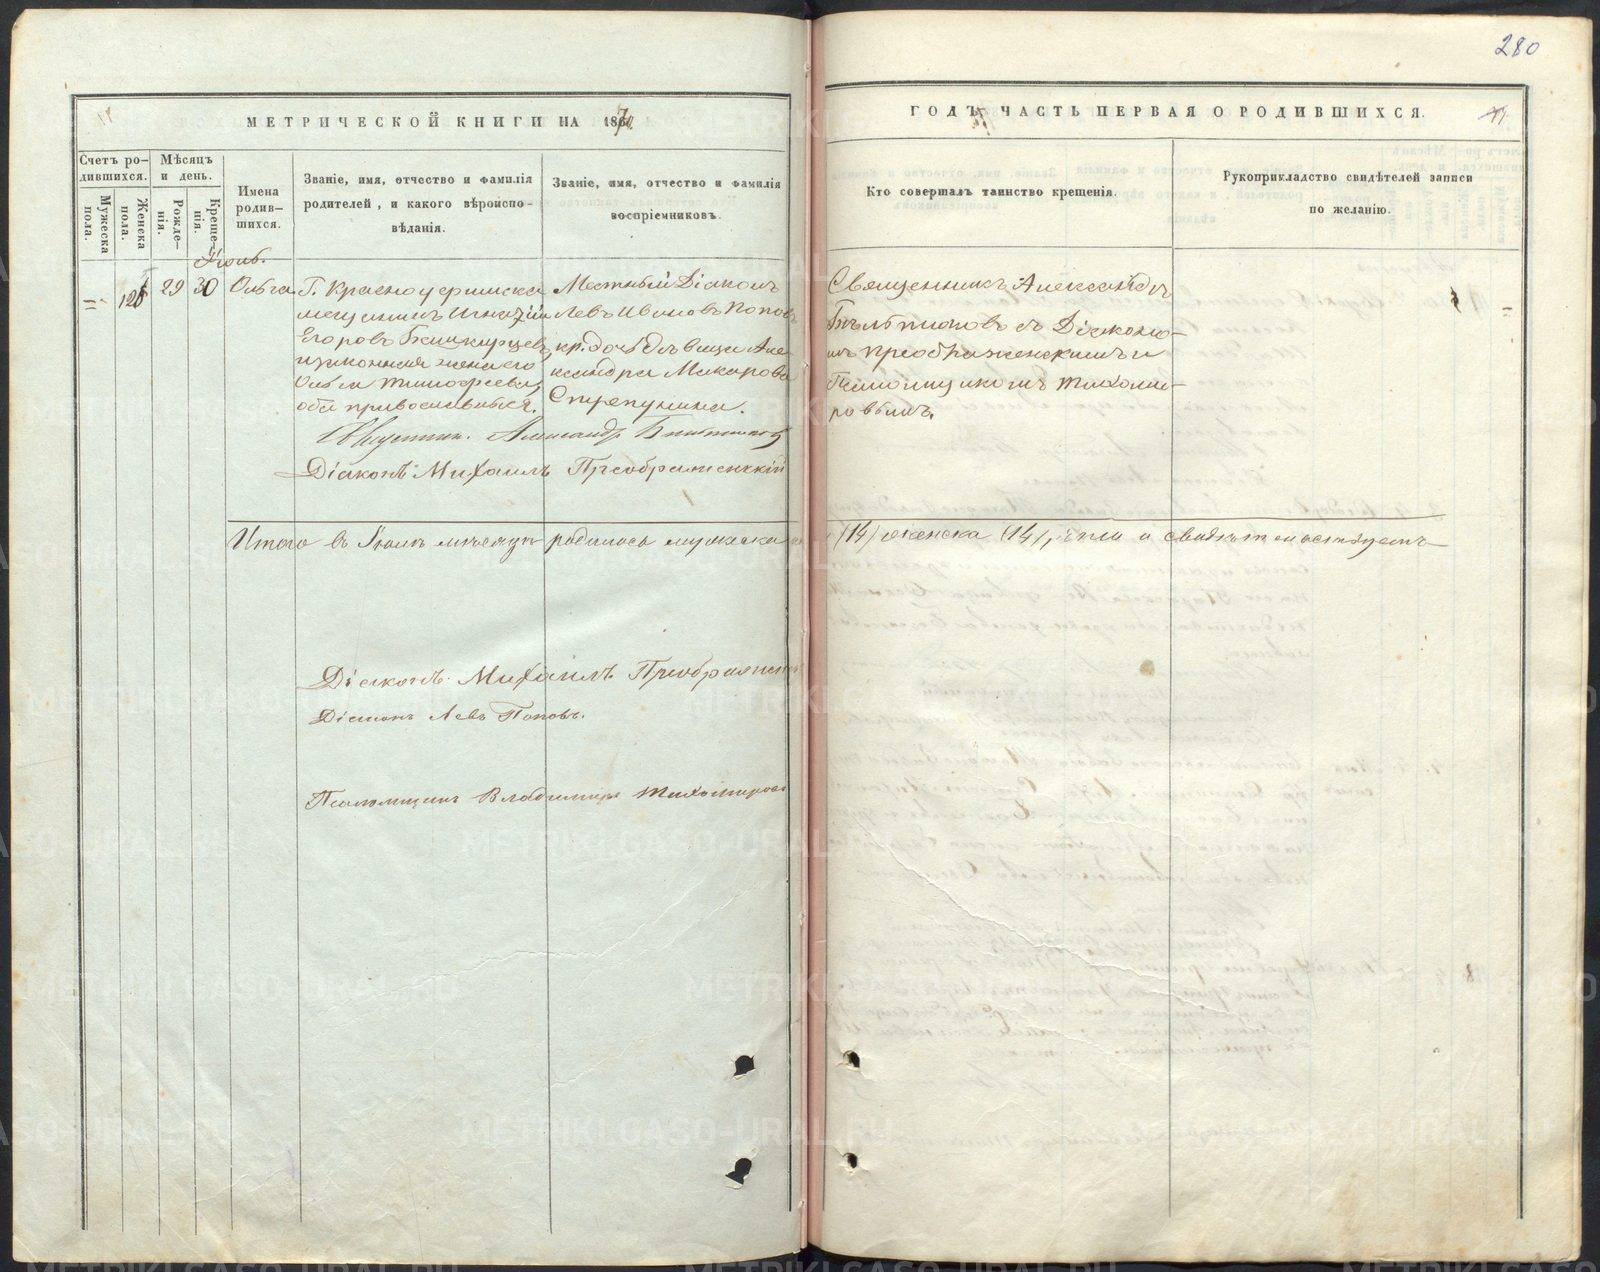 280
МЕТРИЧЕСКОЙ КНИГИ НА 1870
ГОДЪ ЧАСТЬ ПЕРВАЯ О РОДИВШИХСЯ.
Счетъ ро-
дившихся.
Мужеска
пола.
Женска
пола.
Мѣсяцъ
и день.
Рожде-
нія.
Креще-
нія.
Имена
родив-
шихся.
Званіе, имя, отчество и фамилія
родителей, и какого вѣроиспо-
вѣданія.
Званіе, имя, отчество и фамилія
воспріемниковъ.
Кто совершалъ таинство крещенія.
Рукоприкладство свидѣтелей записи
по желанію.
Іюль.
29 30 Ольга
Г. Красноуфимска
мещанинъ Игнатій
Егоровъ
и законная жена его
Ольга Тимофеева,
оба православные.
Местный Діаконъ
Левъ Ивановъ Поповъ
кр. дочь дѣвица Але-
ксандра Макарова
Священникъ Александръ
съ Діакономъ
Преображенскимъ и
Псаломщикомъ Тихоми-
ровымъ.
Священник. Александр
Діаконъ Михаилъ Преображенскій
Итого въ Іюлѣ мѣсяцѣ родилось мужеска
(14) женска (14), въ чемъ и свидѣтельствуемъ
Діаконъ Михаилъ Преображенскій
Діаконъ Левъ Поповъ.
Псаломщикъ Владимиръ Тихомировъ
METRIKI.GASO-URAL.RU